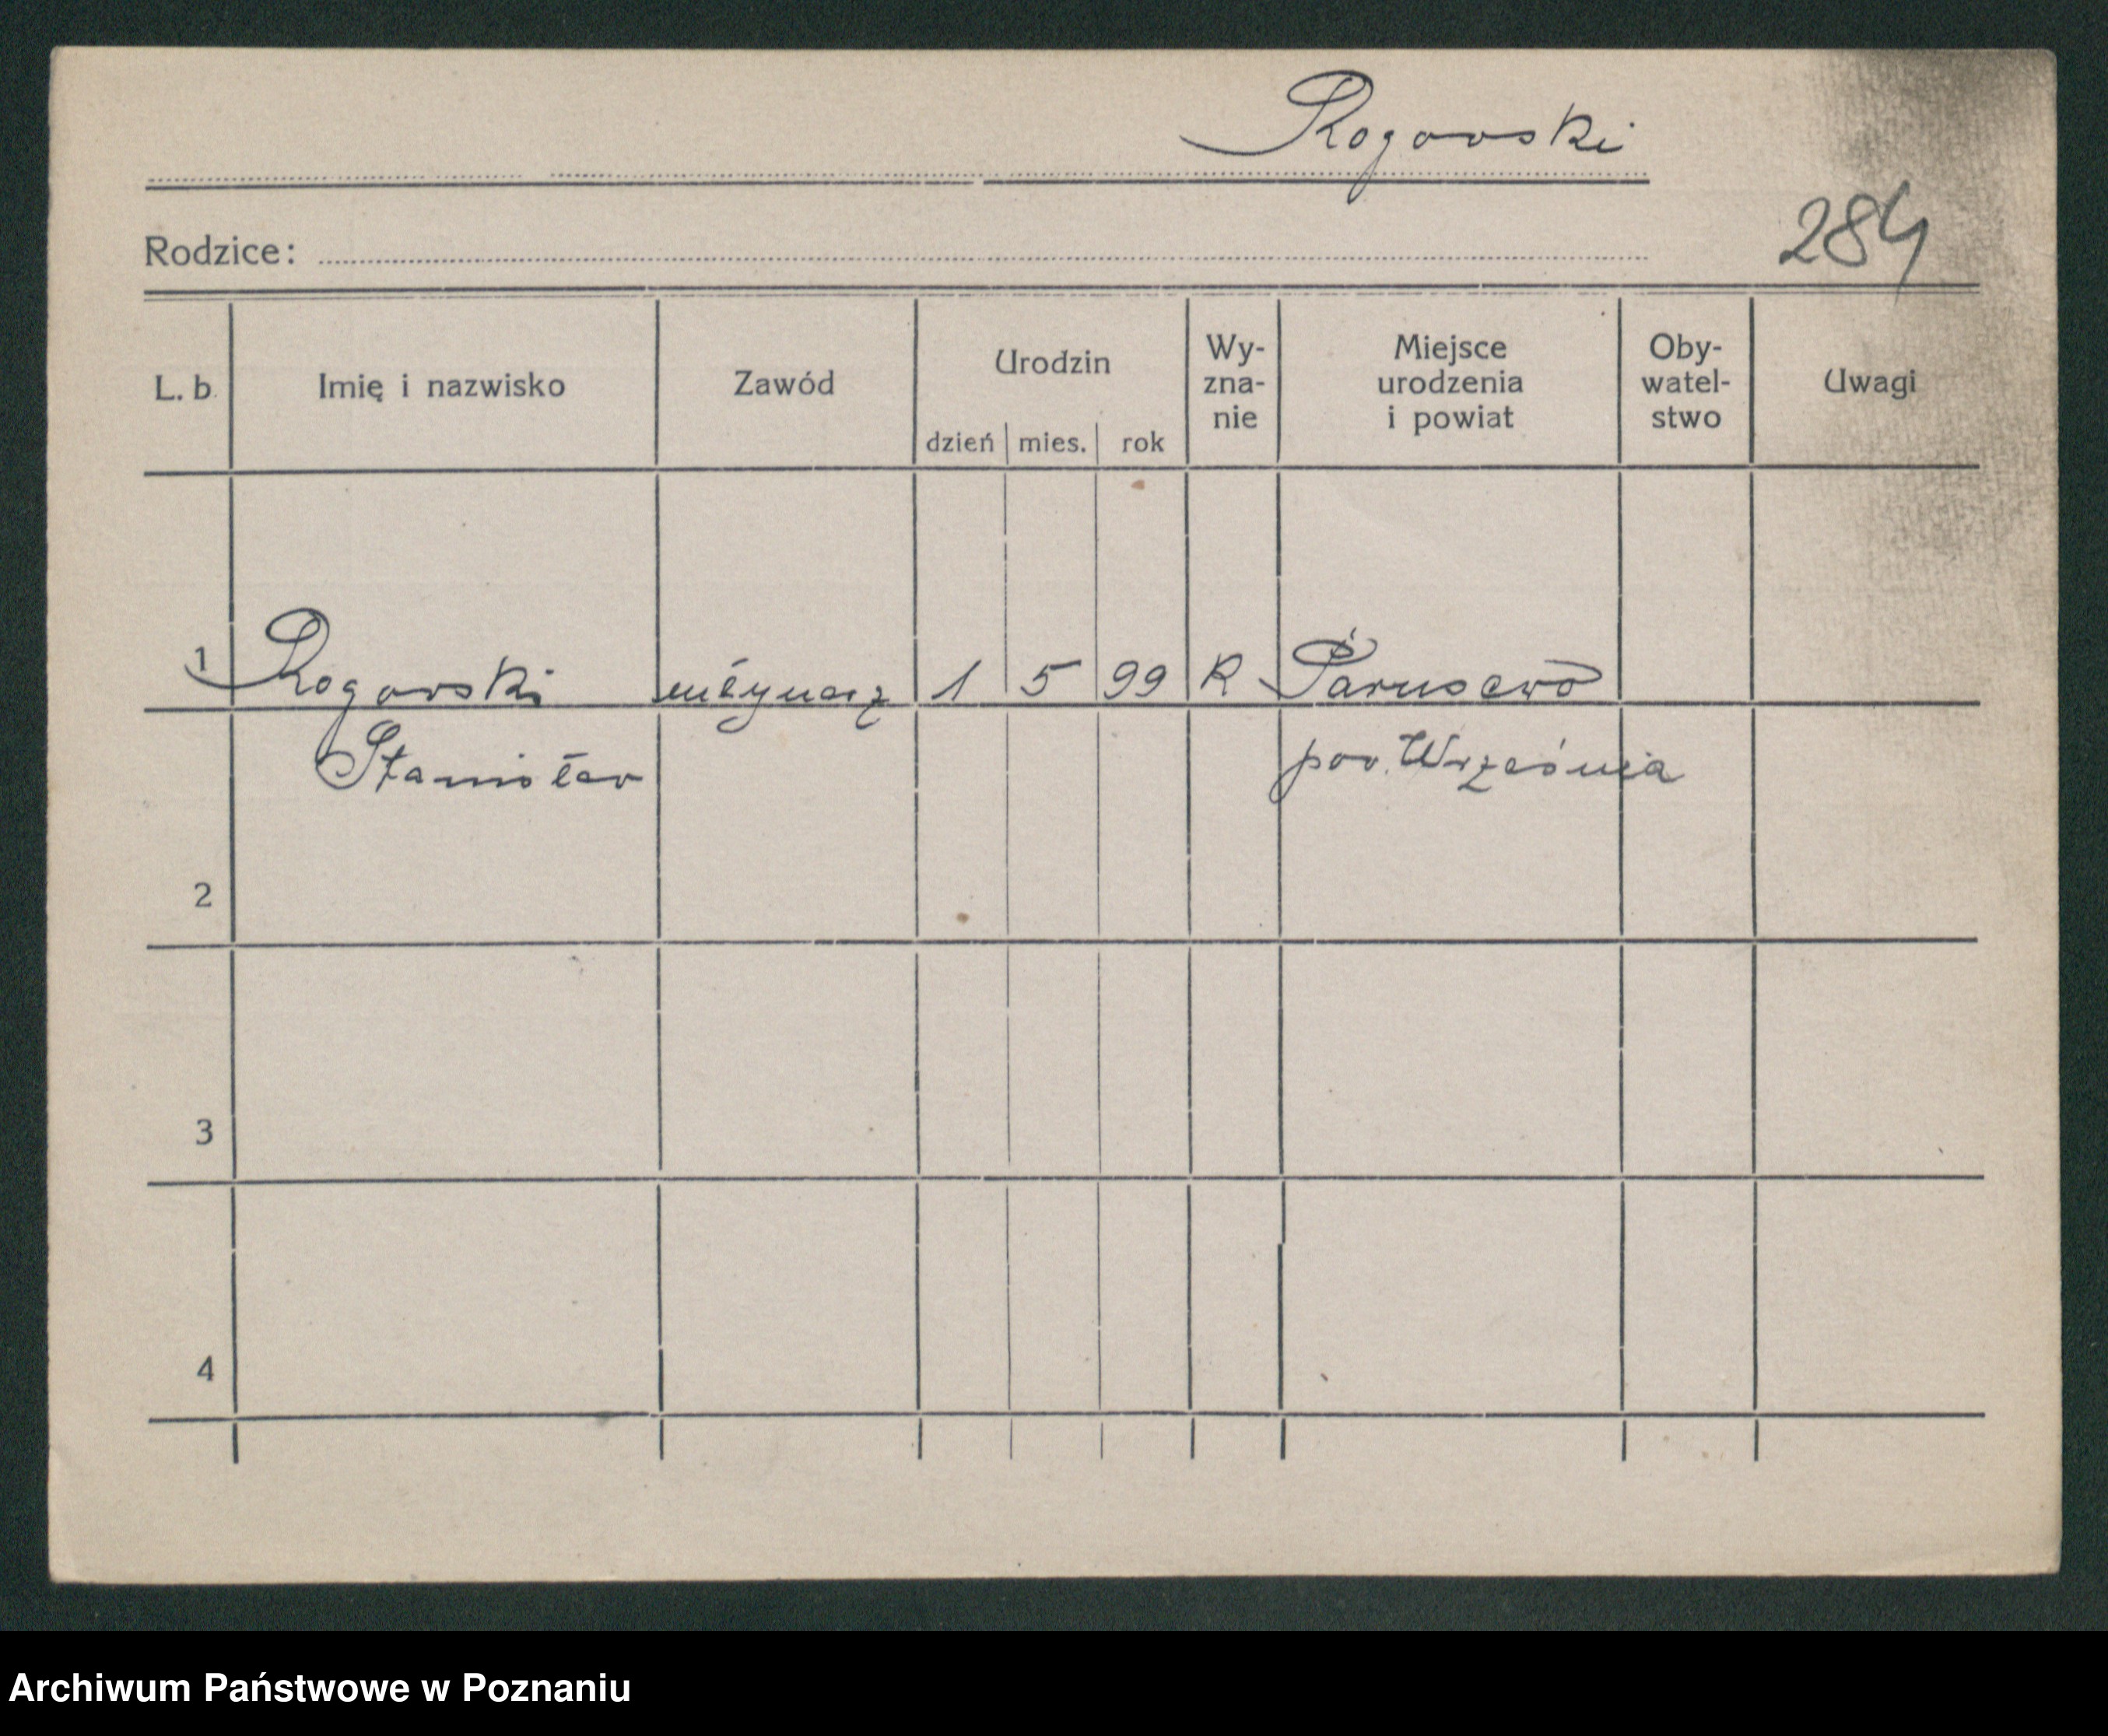 Rogowski
284
Rodzice:
L. b. Imię i nazwisko Zawód Urodzin dzień mies. rok Wy-zna-nie Miejsce urodzenia i powiat Oby-watel-stwo Uwagi
1 Rogowski młynarz 1 5 99 R Parusewo
Stanisław pow. Września
2
3
4
Archiwum Państwowe w Poznaniu